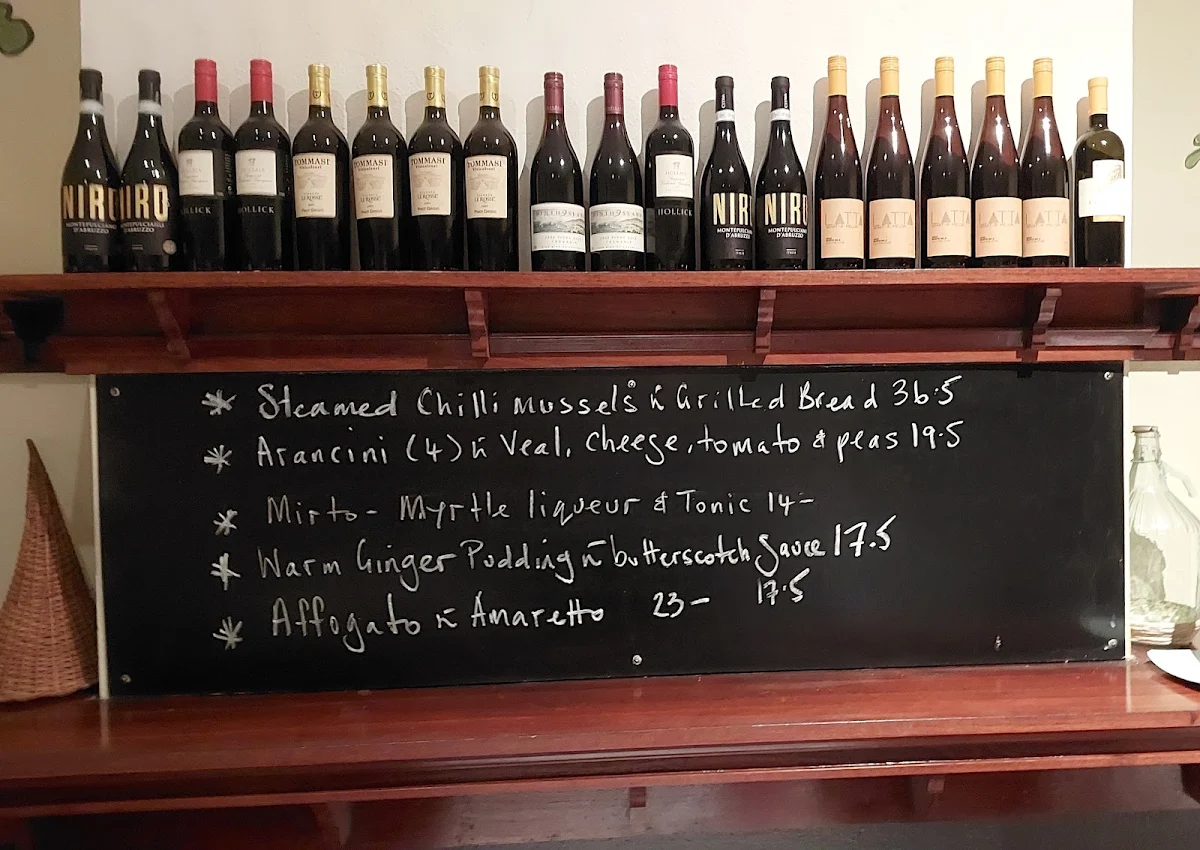 NIRO MONTEPULCIANO D'ABRUZZO
NIRO MONTEPULCIANO D'ABRUZZO
HOLLICK
HOLLICK
TOMMASI
LE ROSSE
Pinot Grigio
TOMMASI
LE ROSSE
Pinot Grigio
TOMMASI
LE ROSSE
Pinot Grigio
TOMMASI
LE ROSSE
Pinot Grigio
HOLLICK
NIRO
MONTEPULCIANO
D'ABRUZZO
NIRO
MONTEPULCIANO
D'ABRUZZO
LATTA
LATTA
LATTA
LATTA
LATTA
* Steamed Chilli Mussels n̄ Grilled Bread 36.5
* Arancini (4) n̄ Veal, cheese, tomato & peas 19.5
* Mirto - Myrtle liqueur & Tonic 14-
* Warm Ginger Pudding n̄ butterscotch Sauce 17.5
* Affogato n̄ Amaretto 23- 17.5